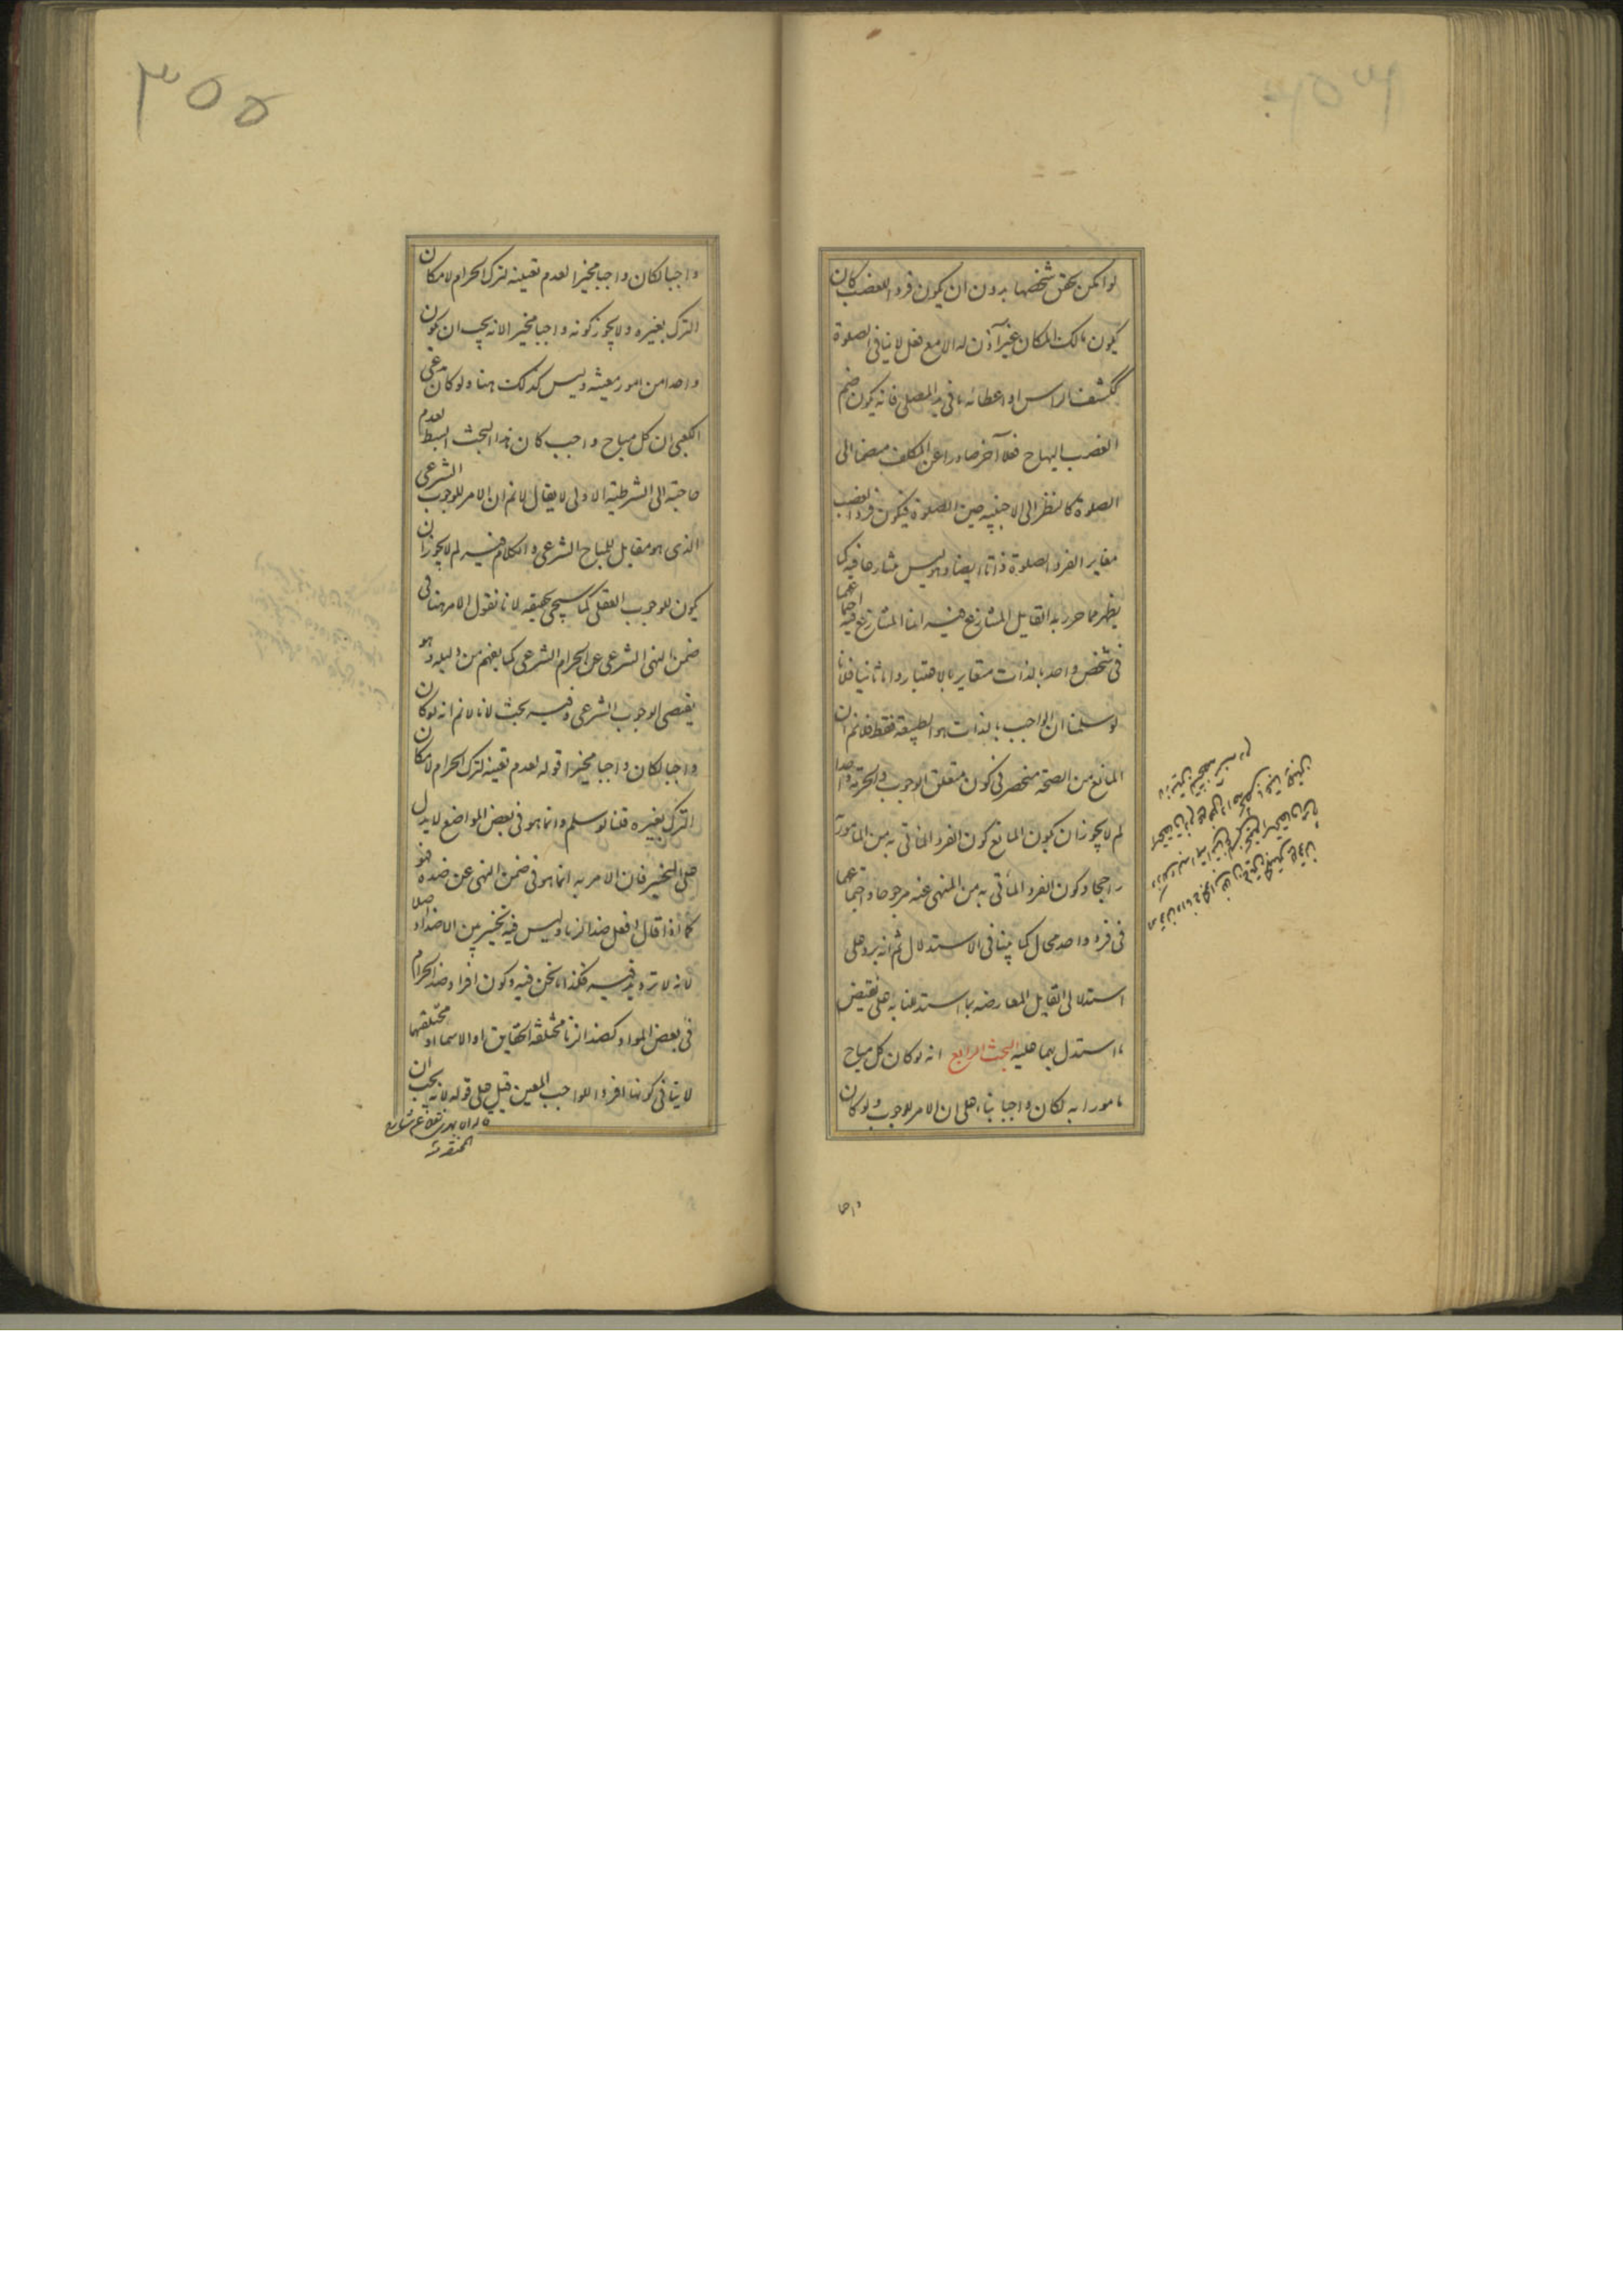 لو امكن تحقق شخصها بدون ان يكون فردا للغصب كان
يكون مالك المكان غير آذن له الا مع فعل لا ينافى الصلوة
ككشف الراس او اعطائه ما فى يد المصلى فانه يكون ضم
الغصب اليها ح فعلا آخر صادرا عن المكلف منضما الى
الصلوة كالنظر الى الاجنبية حين الصلوة فيكون فرد الغصب
مغاير الفرد الصلوة ذاتا ايضا وهو ليس متنازعا فيه كما
يظهر مما حرر به القايل المتنازع فيه انما المتنازع فيه اجتماعهما
فى شخص واحد بالذات متغاير بالاعتبار واما ثانيا فلانا
لو سلمنا ان الواجب بالذات هو الطبيعة فقط فلا نم ان
المانع من الصحة منحصر فى كون متعلق الوجوب والحرمة واحدا
لم لا يجوز ان يكون المانع كون الفرد الماتى به من المامور به
راجحا وكون الفرد المأتى به من المنهى عنه مرجوحا واجتماعهما
فى فرد واحد محال كما بينا فى الاستدلال ثم انه يرد على
استدلال القايل المعارضه بما استدللنا به على نقيض
ما استدل بهما عليه البحث الرابع انه لو كان كل مباح
مامورا به لكان واجبا بناء على ان الامر للوجوب ولو كان
واجبا
٣٥٥
واجبا لكان واجبا مخيرا لعدم تعينه لترك الحرام لامكان
الترك بغيره ولا يجوز كونه واجبا مخيرا لانه يجب ان يكون
واحدا من امور معينه وليس كذلك هنا ولو كان مدعى
الكعبى ان كل مباح واجب كان هذا البحث ابسط لعدم
حاجته الى الشرطية الاولى لا يقال لا نم ان الامر للوجوب الشرعى
الذى هو مقابل للمباح الشرعى والكلام فيه لم لا يجوز ان
يكون للوجوب العقلى كما سيجى تحقيقه لانا نقول الامر هنا فى
ضمن النهى الشرعى عن الحرام الشرعى كما يفهم من دليله وهو
يقتضى الوجوب الشرعى وفيه بحث لانا لا نم انه لو كان
واجبا لكان واجبا مخيرا قوله لعدم تعينه لترك الحرام لامكان
الترك بغيره قلنا لو سلم وانما هو فى بعض المواضع لا يدل
على التخيير فان الامر به انما هو فى ضمن النهى عن ضده فهو
كما اذا قال افعل ضد الزنا وليس فيه تخيير بين الاضداد اصلا
لانه لا ترديد فيه فكذا ما نحن فيه وكون افراد ضد الحرام
فى بعض المواد كضد الزنا مختلفة الحقايق او الاسما او مختلفتها
لا ينافى كونها افراد الواجب المعين قيل على قوله لانه يجب ان